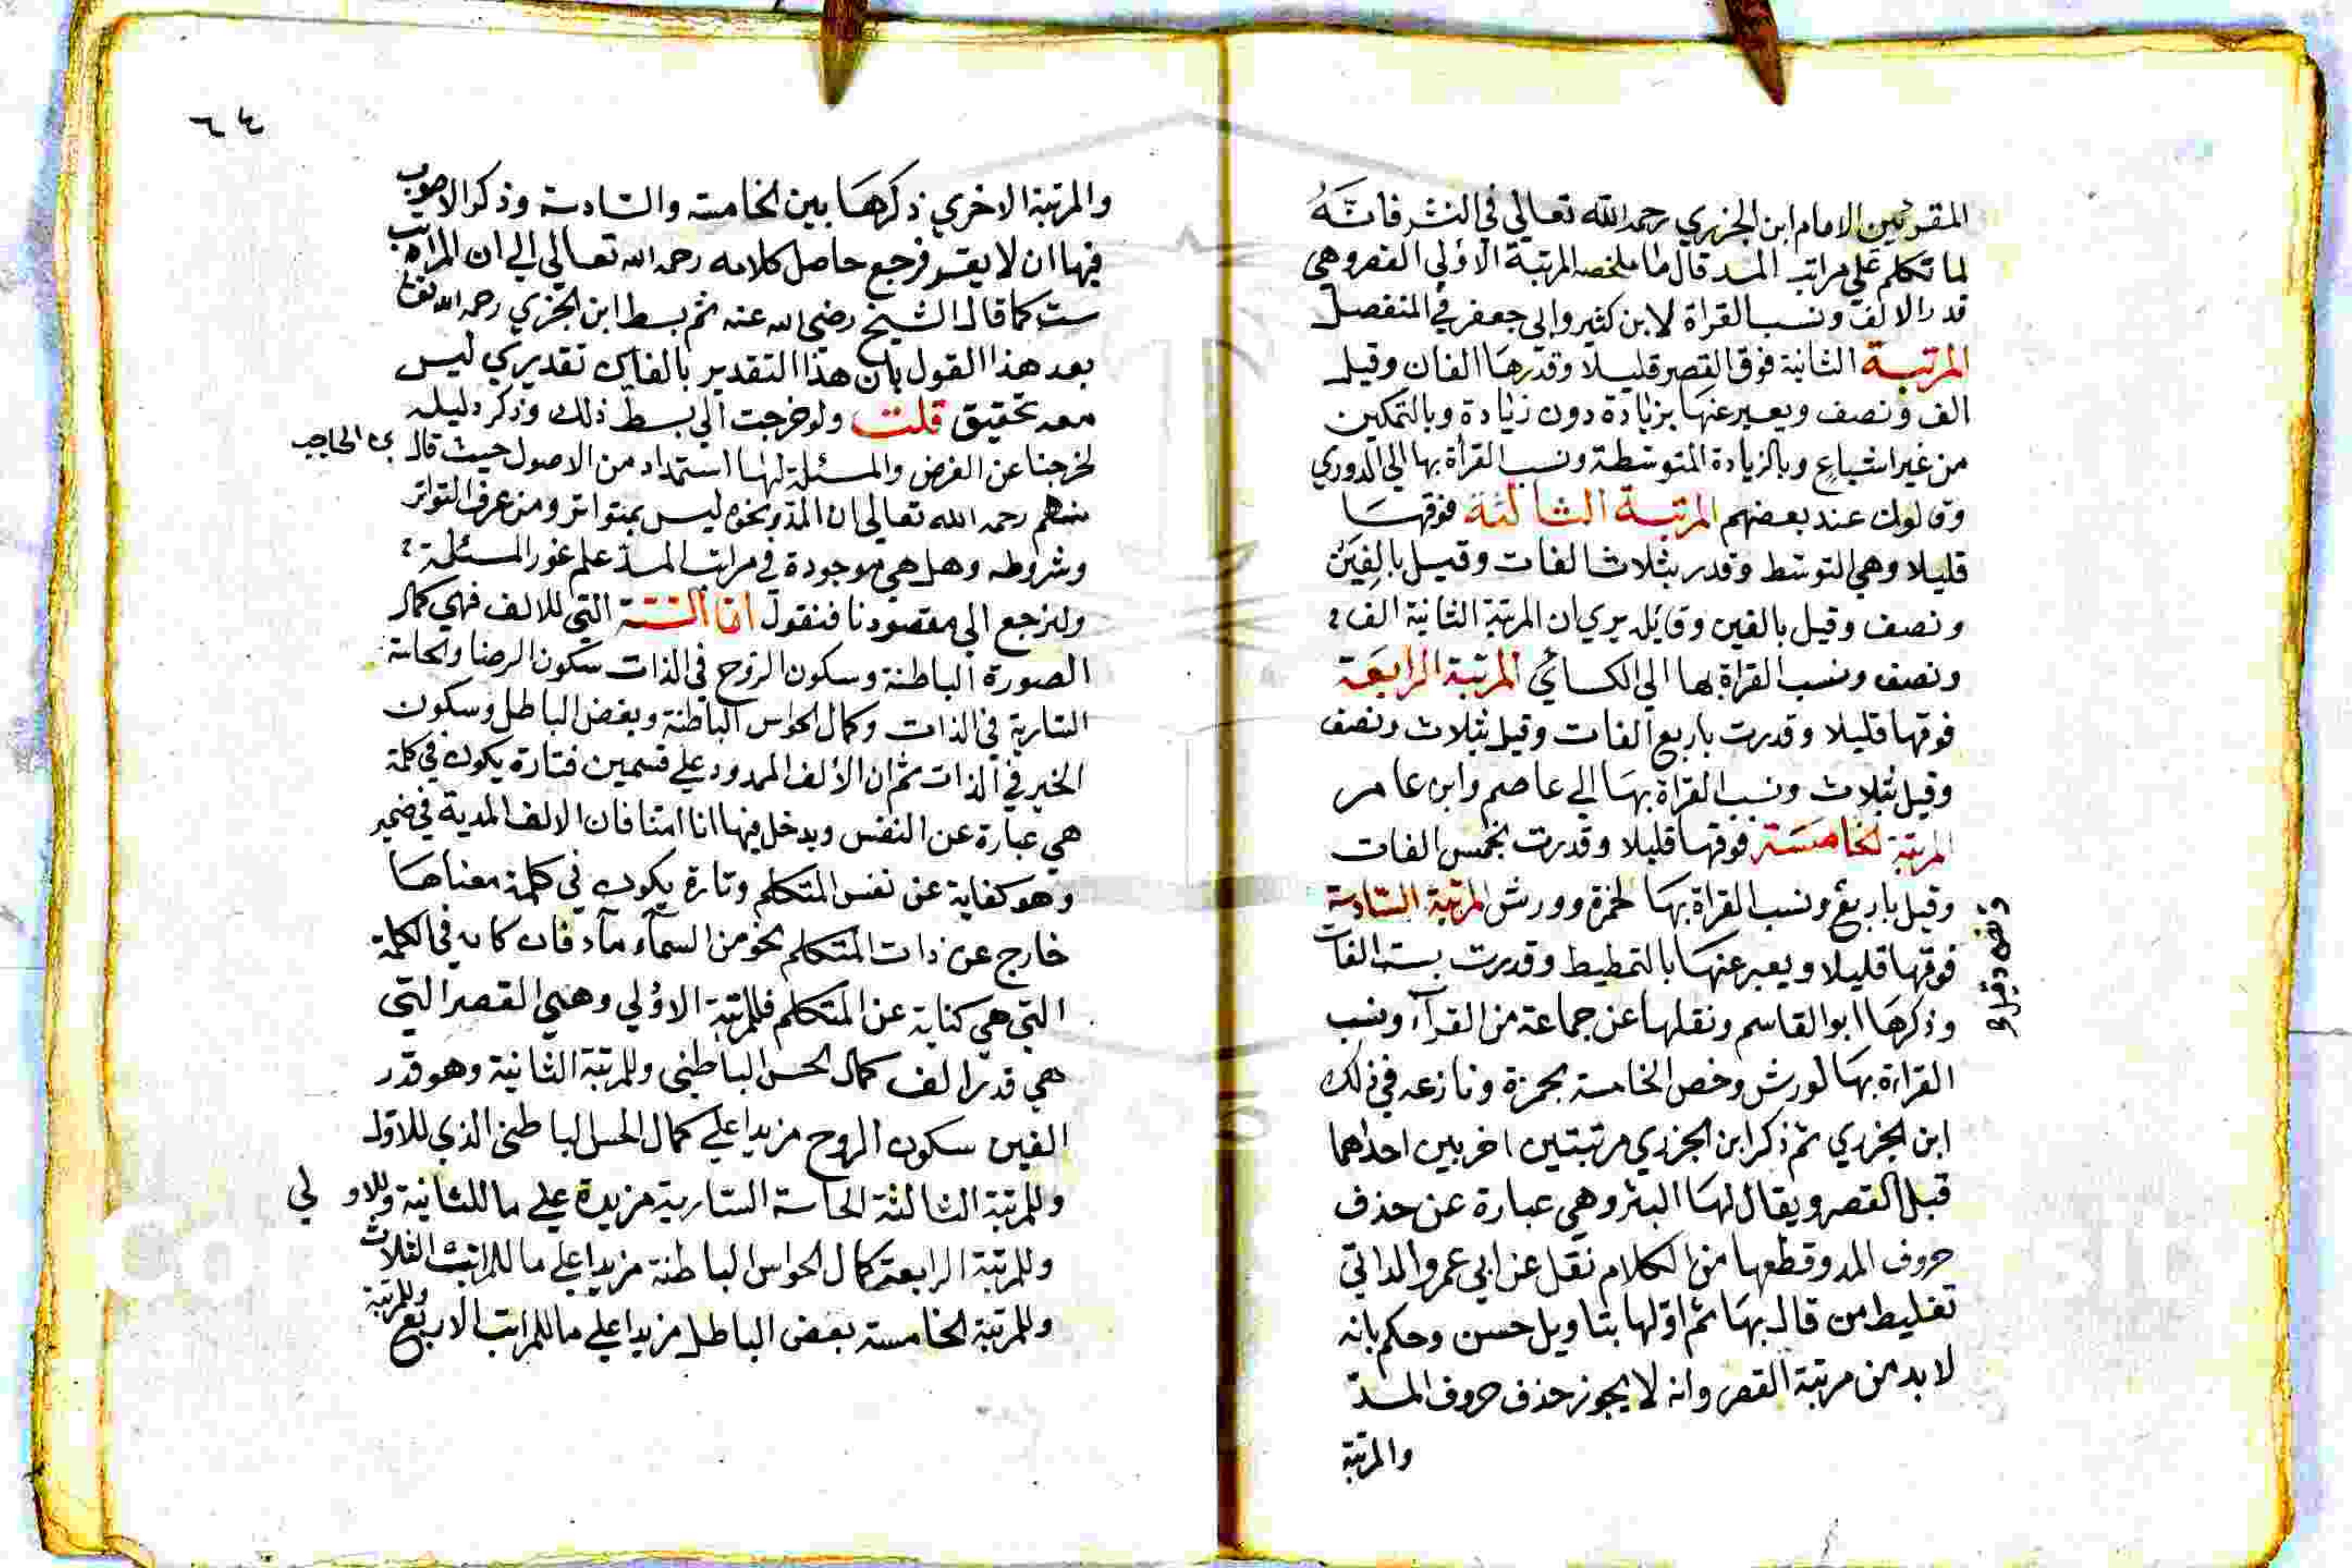 المقرئين الامام ابن الجزري رحمه الله تعالي في النشر فانه
لما تكلم علي مراتب المد قال ما ملخصه المرتبة الاولي القصر وهي
قدر الالف ونسب القراة لابن كثير وابي جعفر في المنفصل
المرتبة الثانية فوق القصر قليلا وقدرها الفان وقيل
الف ونصف ويعبر عنها بزيادة دون زيادة وبالتمكين
من غير اشباع وبالزيادة المتوسطة ونسب القرأة بها الي الدوري
وقالون عند بعضهم المرتبة الثالثة فوقها
قليلا وهي التوسط وقدر بثلاث الفات وقيل بالفين
ونصف وقيل بالفين وقايله يري ان المرتبة الثانية الف
ونصف ونسب القراة بها الي الكسائي المرتبة الرابعة
فوقها قليلا وقدرت باربع الفات وقيل بثلاث ونصف
وقيل بثلاث ونسب القراة بها الي عاصم وابن عامر
المرتبة الخامسة فوقها قليلا وقدرت بخمس الفات
وقيل باربع ونسب القراة بها لحمزة وورش المرتبة السادسة
فوقها قليلا ويعبر عنها بالتمطيط وقدرت بست الفات
وذكرها ابو القاسم ونقلها عن جماعة من القرآء ونسب
القراءة بها لورش وخص الخامسة بحمزة ونازعه في ذلك
ابن الجزري ثم ذكر ابن الجزري مرتبتين اخريين احداهما
قبل القصر ويقال لها البتر وهي عبارة عن حذف
حروف المد وقطعها من الكلام نقل عن ابي عمرو الداني
تغليط من قال بها ثم اولها بتاويل حسن وحكم بانه
لا بد من مرتبة القصر وانه لا يجوز حذف حروف المد
والمرتبة
٦٤
والمرتبة الاخري ذكرها بين الخامسة والسادسة وذكر الاصوب
فيها ان لا يقسم فرجع حاصل كلامه رحمه الله تعالي الي ان المراتب
ست كما قال الشيخ رضي الله عنه ثم بسط ابن الجزري رحمه الله تعالي
بعد هذا القول بان هذا التقدير بالفات تقديري ليس
معه تحقيق قلت ولو خرجت الي بسط ذلك وذكر دليله
لخرجنا عن الغرض والمسئلة لها استمداد من الاصول حيث قال ابن الحاجب
منهم رحمه الله تعالي ان المد ونحوه ليس بمتواتر ومن عرف التواتر
وشروطه وهل هي موجودة في مراتب المد علم غور المسئلة
ولنرجع الي مقصودنا فنقول اما الستة التي للالف فهي كمال
الصورة الباطنة وسكون الروح في الذات سكون الرضا والحاسة
السارية في الذات وكمال الحواس الباطنة وبغض الباطل وسكون
الخير في الذات ثم ان الالف الممدود علي قسمين فتارة يكون في كلمة
هي عبارة عن النفس ويدخل فيها انا امنا فان الالف المدية في ضمير
وهو كفاية عن نفس المتكلم وتارة يكون في كلمة معناها
خارج عن ذات المتكلم نحو من السمآء مآء فان كان في الكلمة
التي هي كناية عن المتكلم فللمرتبة الاولي وهي القصر التي
هي قدر الف كمال الحس الباطني وللمرتبة الثانية وهو قدر
الفين سكون الروح مزيدا علي كمال الحس الباطني الذي للاول
وللمرتبة الثالثة الحاسة السارية مزيدة علي ما للثانية وللاولي
وللمرتبة الرابعة كمال الحواس الباطنة مزيدا علي ما للمراتب الثلاث
وللمرتبة الخامسة بعض الباطل مزيدا علي ما للمراتب الاربع
وللمرتبة